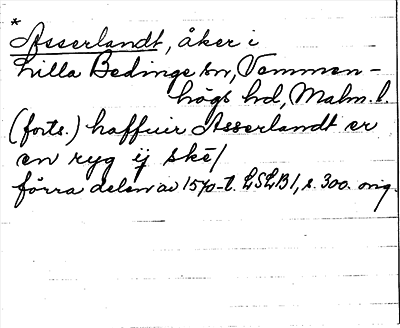 *
Asserlandt, åker i
Lilla Bedinge sn, Vemmen-
högs hd, Malm. l.
(forts.) haffuir Asserlandt er
en ryg ij skē/
förra delen av 1570-t. LSLB1, s. 300. orig.